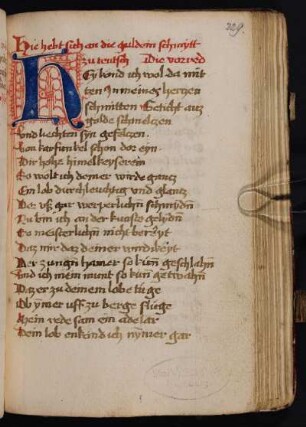 229.
Hie hebt sich an die guldein schmytt
zu teutsch Die vorred
Ey kund ich wol da mit
ten In meines hertzen
schmitten Geticht auß
golde schmeltzen
Und liechten syn gefeltzen
Von karfunkel schon dor eyn
Dir hohe himelkeyserein
So wolt ich deiner wirde gantz
Ein lob durchleuchtig und glantz
Dar uß gar
Nu bin ich an der kunste
So meisterlichen nicht
Das mir das deiner wirdikeyt
Der zungen hamer so kunn geschlahen
Und ich mein munt so kunn getwahen
Das er zu deinem lobe tüge
Ob ymer uff zu berge flüge
Mein rede sam ein adelar
Dein lob enkund ich nymer gar